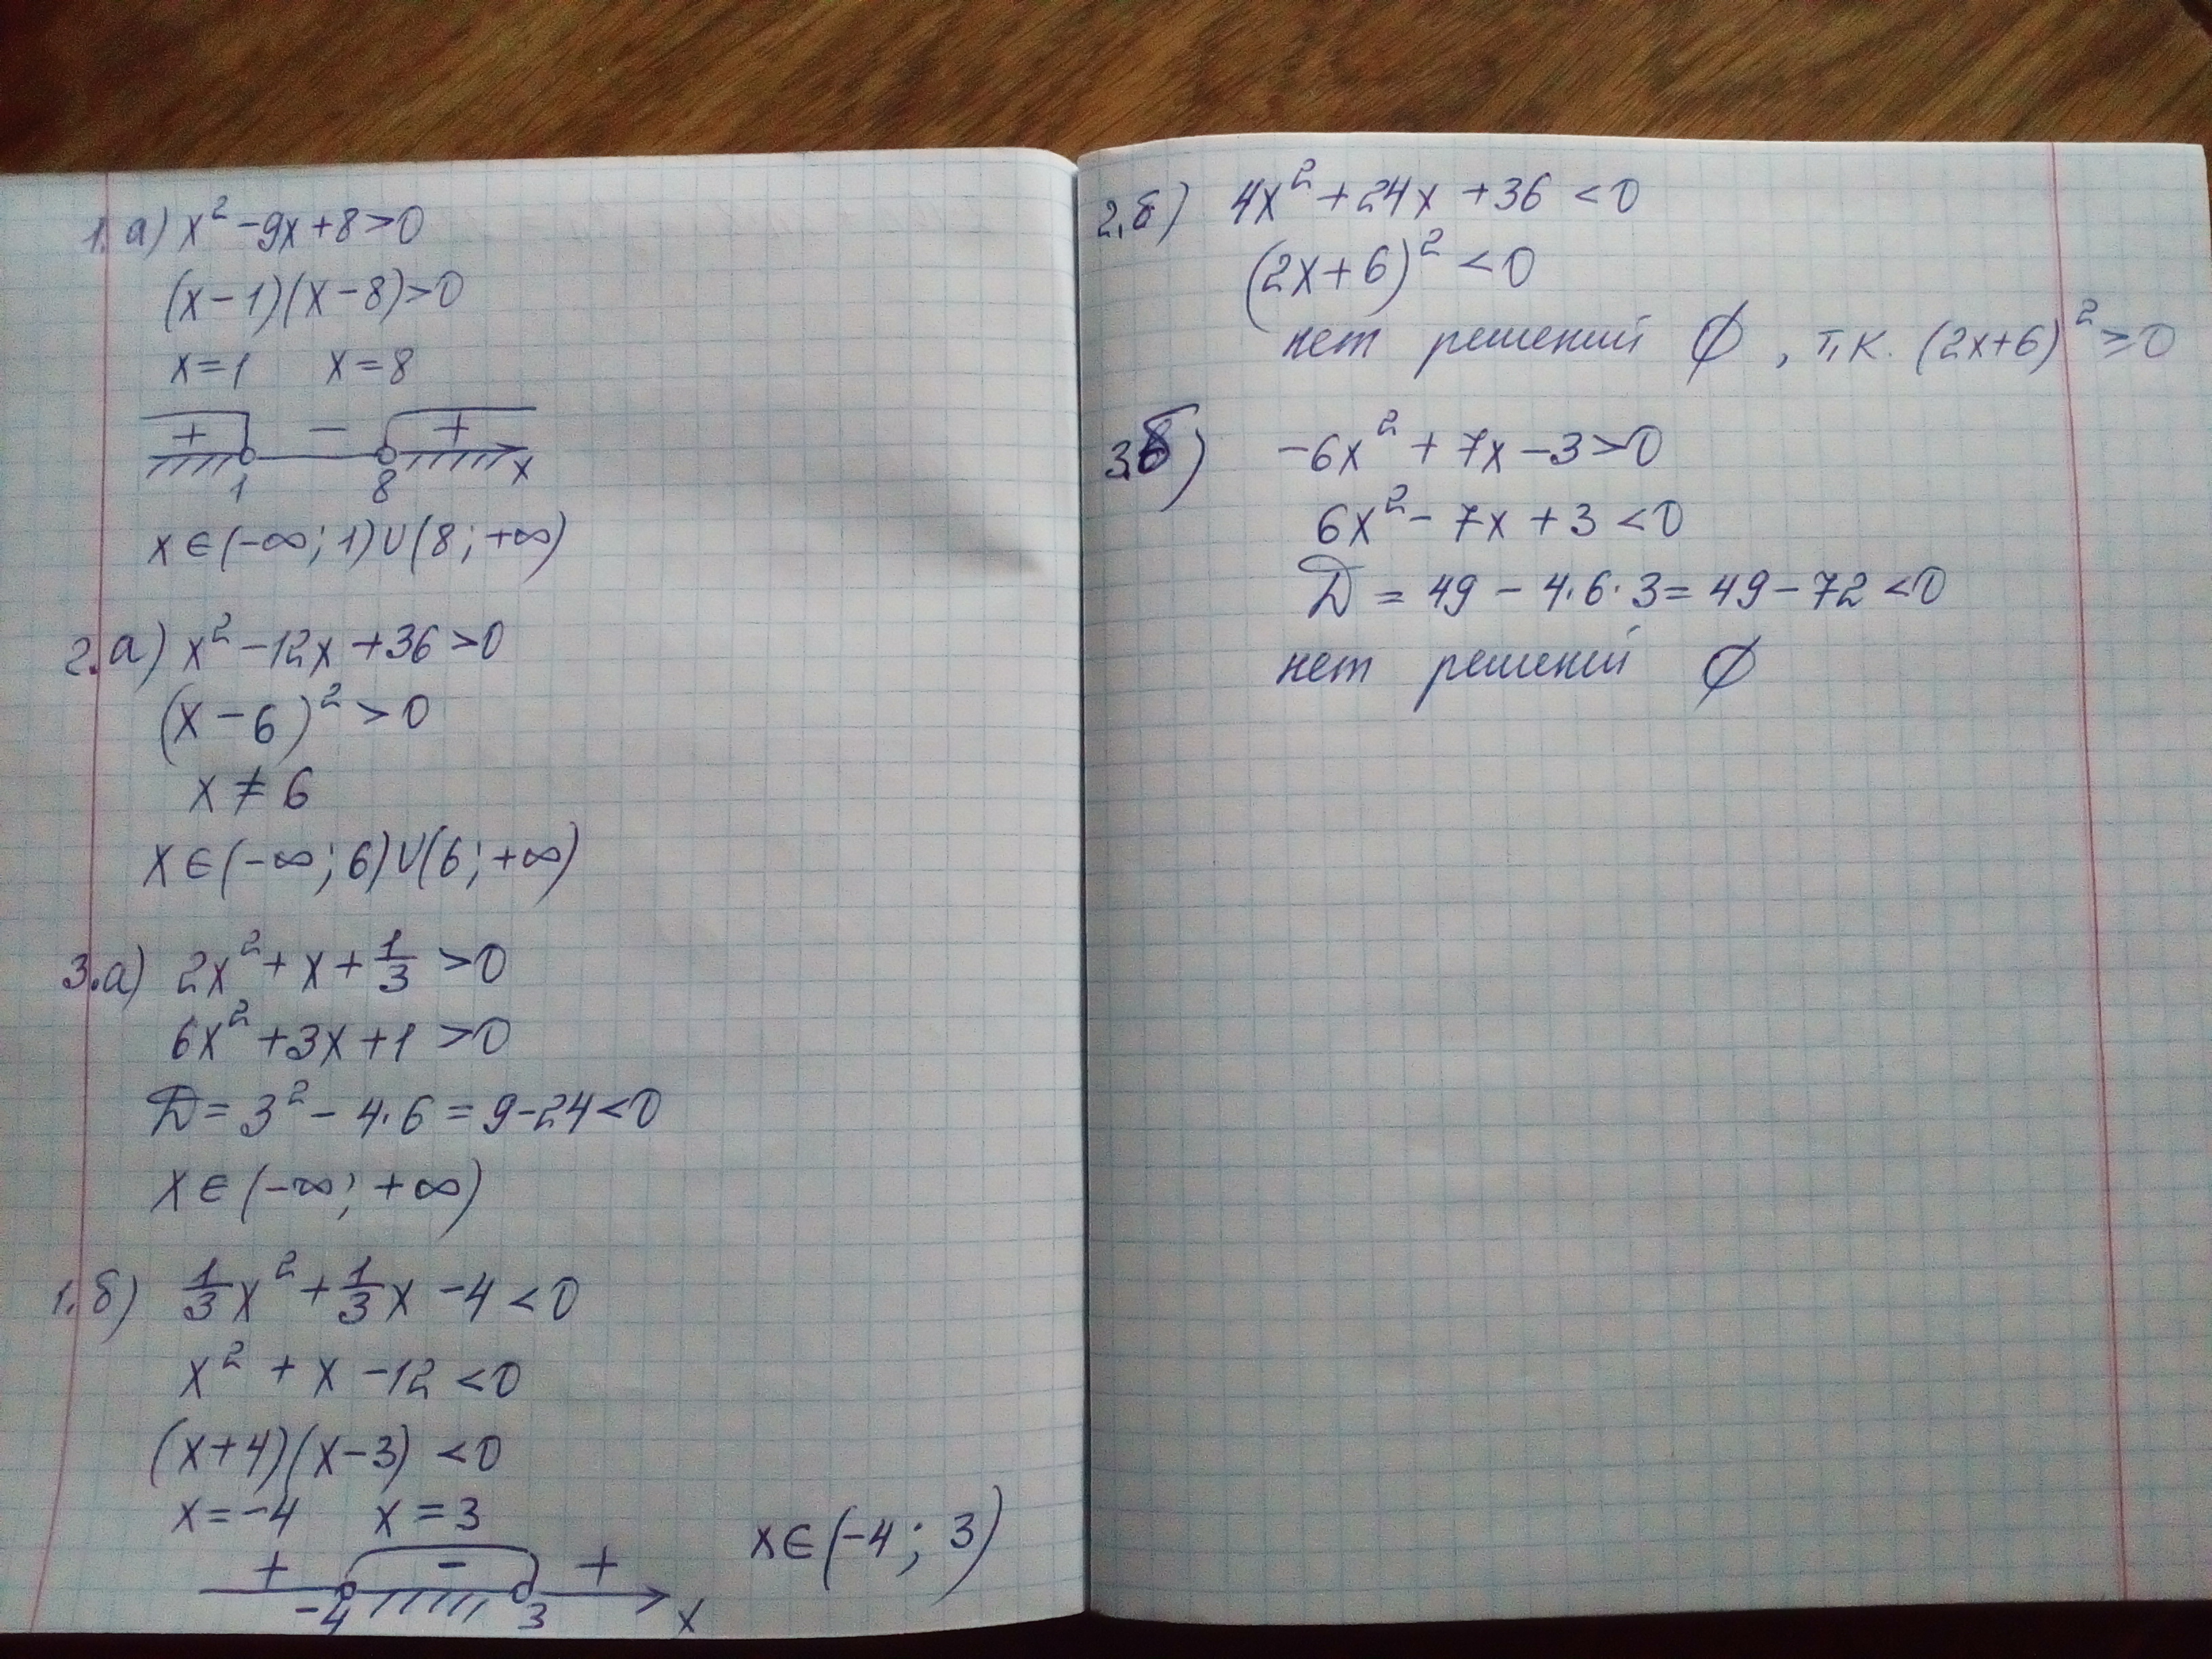 1.а) x² -9x+8>0
(x-1)(x-8)>0
x=1 x=8
+ - +
1 8 x
x∈(-∞; 1)∪(8; +∞)
2.а) x² -12x +36 >0
(x-6)² >0
x ≠ 6
x∈(-∞; 6)∪(6; +∞)
3.а) 2x² + x + 1/3 >0
6x² +3x +1 >0
D = 3² - 4·6 = 9-24<0
x∈(-∞; +∞)
1.б) 1/3 x² + 1/3 x -4 <0
x² + x -12 <0
(x+4)(x-3) <0
x=-4 x=3
+ - + x∈(-4; 3)
-4 3 x
2.б) 4x² +24x +36 <0
(2x+6)² <0
нет решений ∅, т.к. (2x+6)² ≥0
3.б) -6x² + 7x -3>0
6x² - 7x +3 <0
D = 49 - 4·6·3= 49-72 <0
нет решений ∅